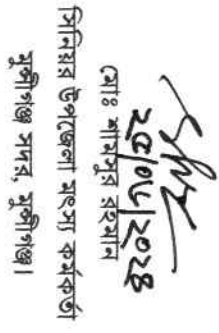 ২৫/০৮/২০২৪
মোঃ শামসুর রহমান
সিনিয়র উপজেলা মৎস্য কর্মকর্তা
মুন্সীগঞ্জ সদর, মুন্সীগঞ্জ।